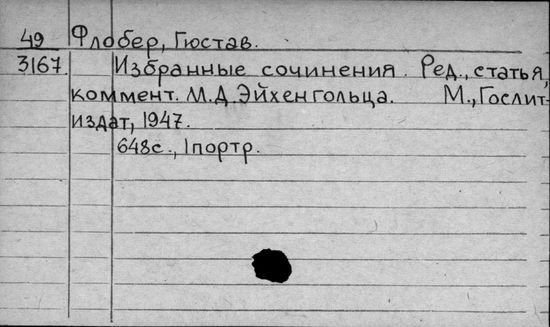 49 Флобер, Гюстав.
3167 Избранные сочинения. Ред., статья,
коммент. М.Д. Эйхенгольца. М., Гослит-
издат, 1947.
648с., 1портр.